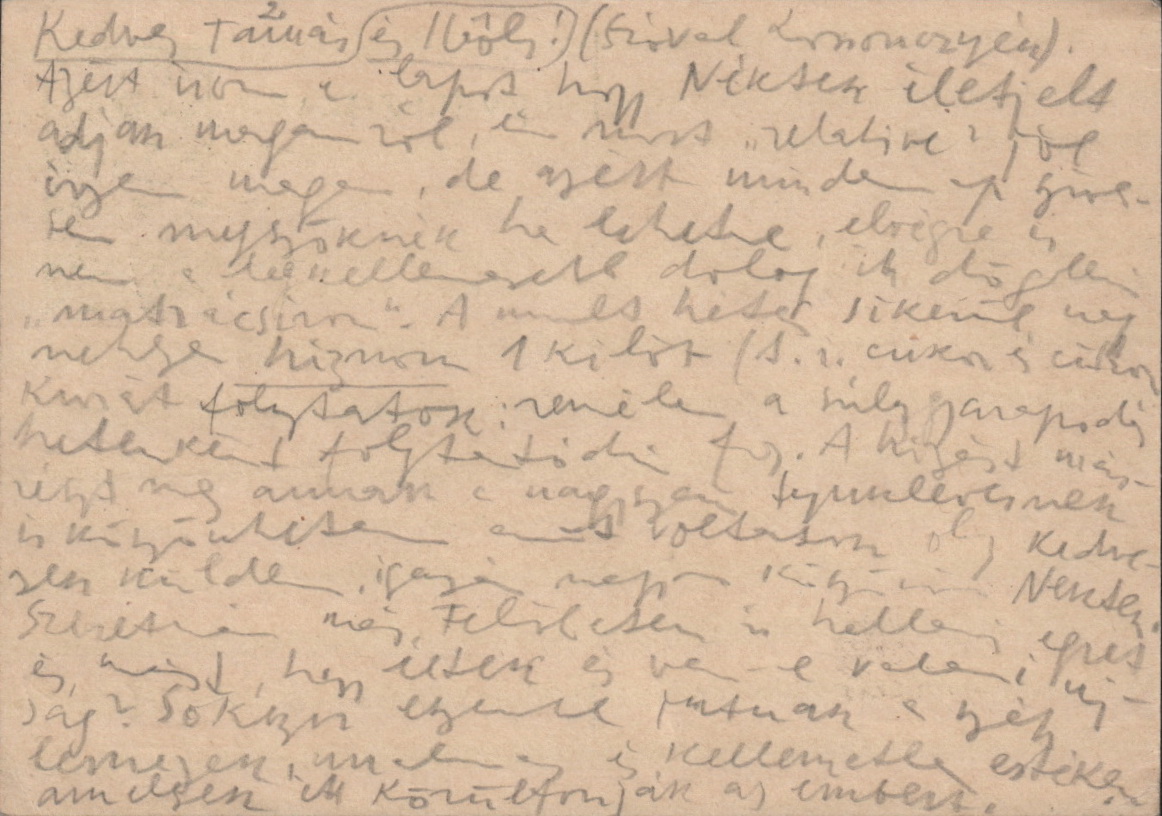 Kedves Tamás és Ibôly! (Szóval
Azért irom e lapot hogy Néktek életjelt
adjak magamról, én most „relative" jól
érzem magam, de azért minden nap szive-
sen megszöknék ha lehetne, elvégre is
nem a legkellemesebb dolog itt dögleni
„matrácsiron". A mult héten sikerült még
hiznom 1 kilót (S. i. cukor és cukor
kurát folytatok: remélem a súlygyarapodás
hetenként folytatódni fog. A hizást más-
részt meg annak a nagyszerű tyuklevesnek
is köszönhetem amit voltatok oly kedve-
sek küldeni, igazán nagyon köszönöm Nektek.
Szeretnék már Felőletek is hallani egyet
és mást, hogy éltek és van-e valami uj-
ság? Sokszor eszembe jutnak a szép
lemezek, unalmas és kellemetlen estéken
amelyek itt körülfonják az embert.